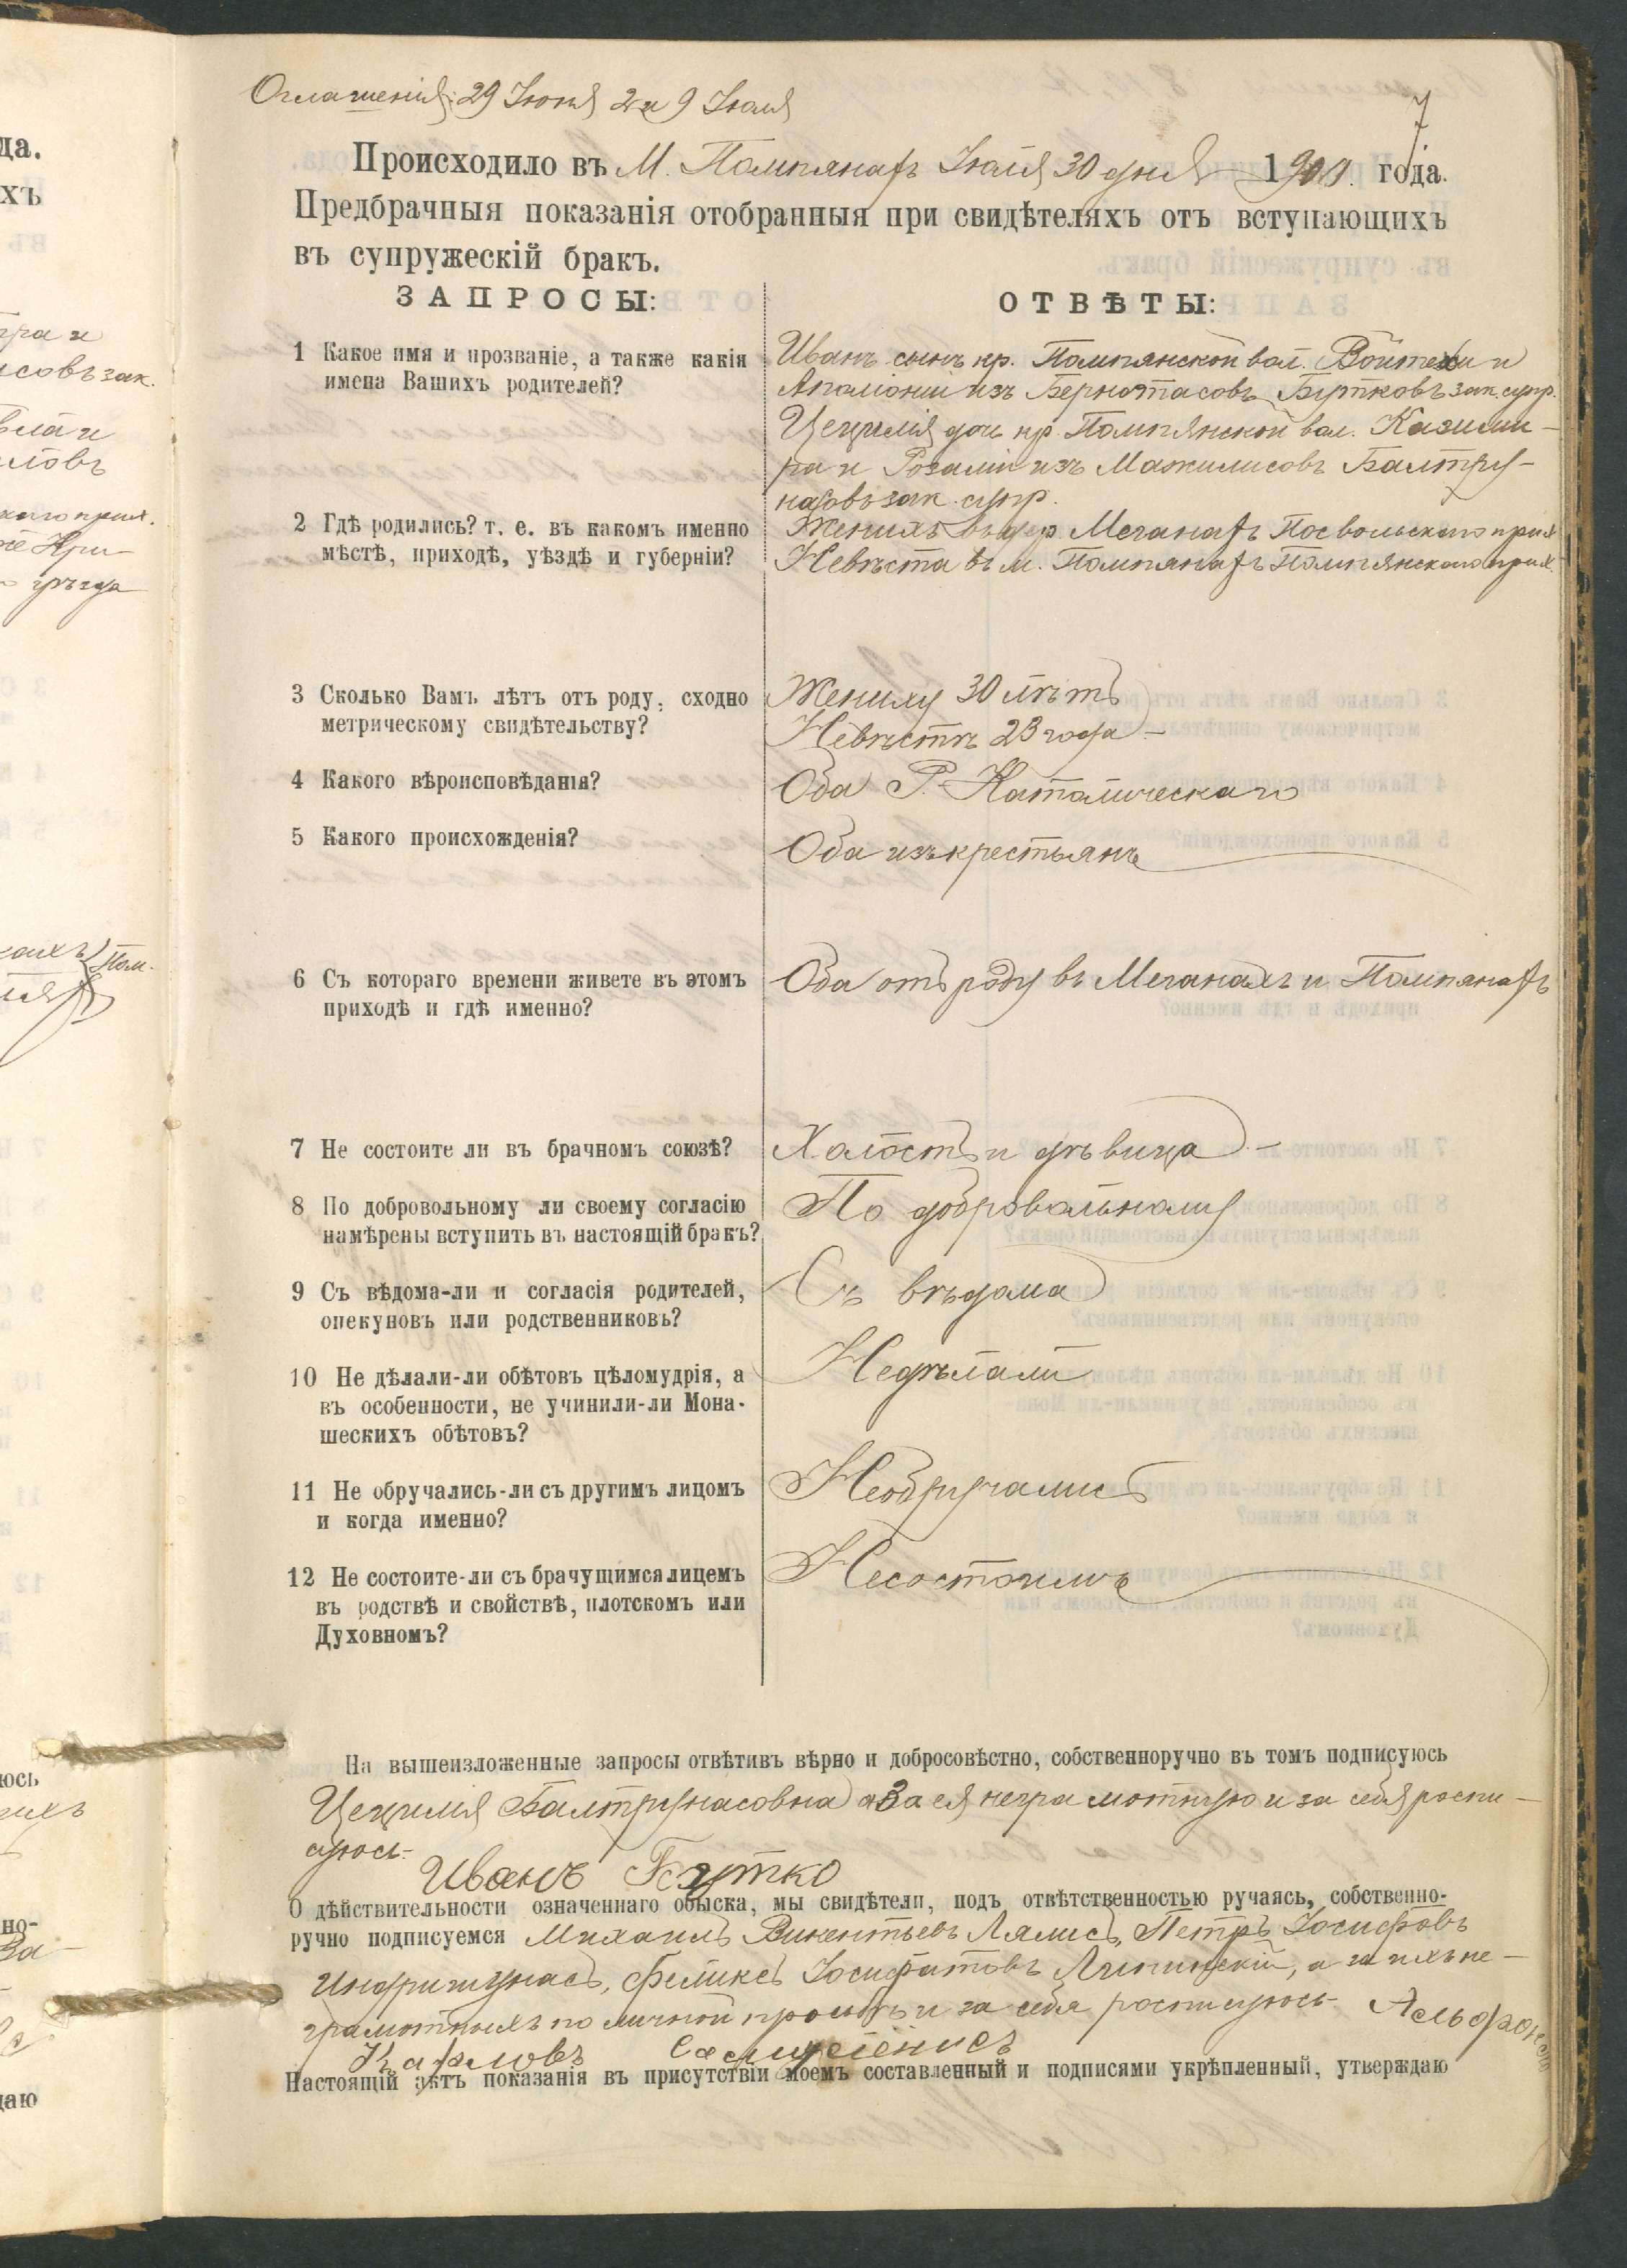 Оглашенія: 29 Іюня 2 и 9 Іюля
7
Происходило въ М. Помпянахъ Іюля 30 дня 1900 года.
Предбрачныя показанія отобранныя при свидѣтеляхъ отъ вступающихъ
въ супружескій бракъ.
ЗАПРОСЫ:
ОТВѢТЫ:
1 Какое имя и прозваніе, а также какія
имена Вашихъ родителей?
Иванъ сынъ кр. Помпянской вол. Войтеха и
Аполоніи изъ Бернотасовъ Бутковъ зак. супр.
Цецилія дочь кр. Помпянской вол. Казими-
ра и Розаліи изъ Мажилисовъ Балтру-
насовъ зак. супр.
2 Гдѣ родились? т. е. въ какомъ именно
мѣстѣ, приходѣ, уѣздѣ и губерніи?
Женихъ въ дер. Мечанахъ Посвольскаго прих.
Невѣста въ м. Помпянахъ Помпянскаго прих.
3 Сколько Вамъ лѣтъ отъ роду, сходно
метрическому свидѣтельству?
Жениху 30 лѣтъ
Невѣстѣ 23 года
4 Какого вѣроисповѣданія?
Оба Р. Католическаго
5 Какого происхожденія?
Оба изъ крестьянъ
6 Съ котораго времени живете въ этомъ
приходѣ и гдѣ именно?
Оба отъ роду въ Мечанахъ и Помпянахъ
7 Не состоите ли въ брачномъ союзѣ?
Холостъ и дѣвица
8 По добровольному ли своему согласію
намѣрены вступить въ настоящій бракъ?
По добровольному
9 Съ вѣдома-ли и согласія родителей,
опекуновъ или родственниковъ?
Съ вѣдома
10 Не дѣлали-ли обѣтовъ цѣломудрія, а
въ особенности, не учинили-ли Мона-
шескихъ обѣтовъ?
Недѣлали
11 Не обручались-ли съ другимъ лицомъ
и когда именно?
Необручались
12 Не состоите-ли съ брачущимся лицемъ
въ родствѣ и свойствѣ, плотскомъ или
Духовномъ?
Несостоимъ
На вышеизложенные запросы отвѣтивъ вѣрно и добросовѣстно, собственноручно въ томъ подписуюсь
Цецилія Балтрунасовна а за ея неграмотную и за себя роспи-
суюсь.
Иванъ Бутко
О дѣйствительности означеннаго обыска, мы свидѣтели, подъ отвѣтственностью ручаясь, собственно-
ручно подписуемся Михаилъ Викентьевъ Лялисъ, Петръ Іосифовъ
Индришунасъ, Феликсъ Іосифатовъ Липинскій, а за ихъ не-
грамотныхъ по личной просьбѣ и за себя росписуюсь Альфонсъ
Карловъ
Настоящій актъ показанія въ присутствіи моемъ составленный и подписями укрѣпленный, утверждаю